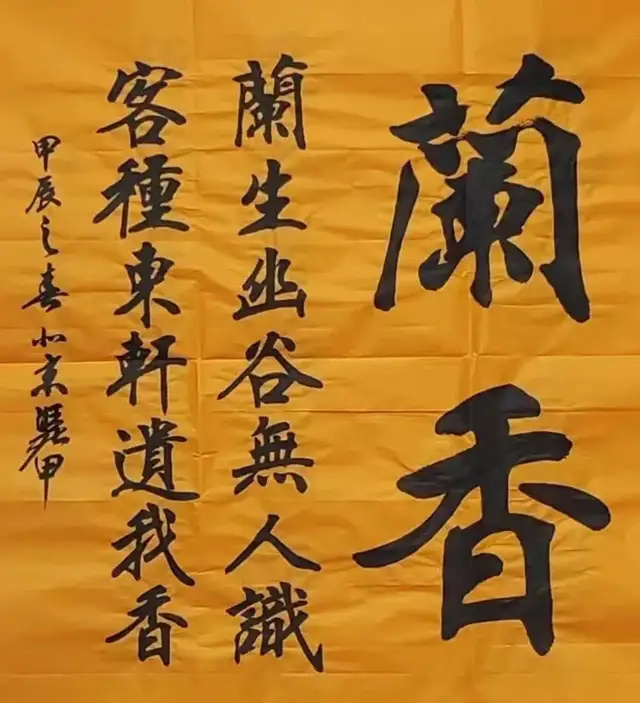 蘭香
蘭生幽谷無人識
客種東軒遺我香
甲辰之春北京